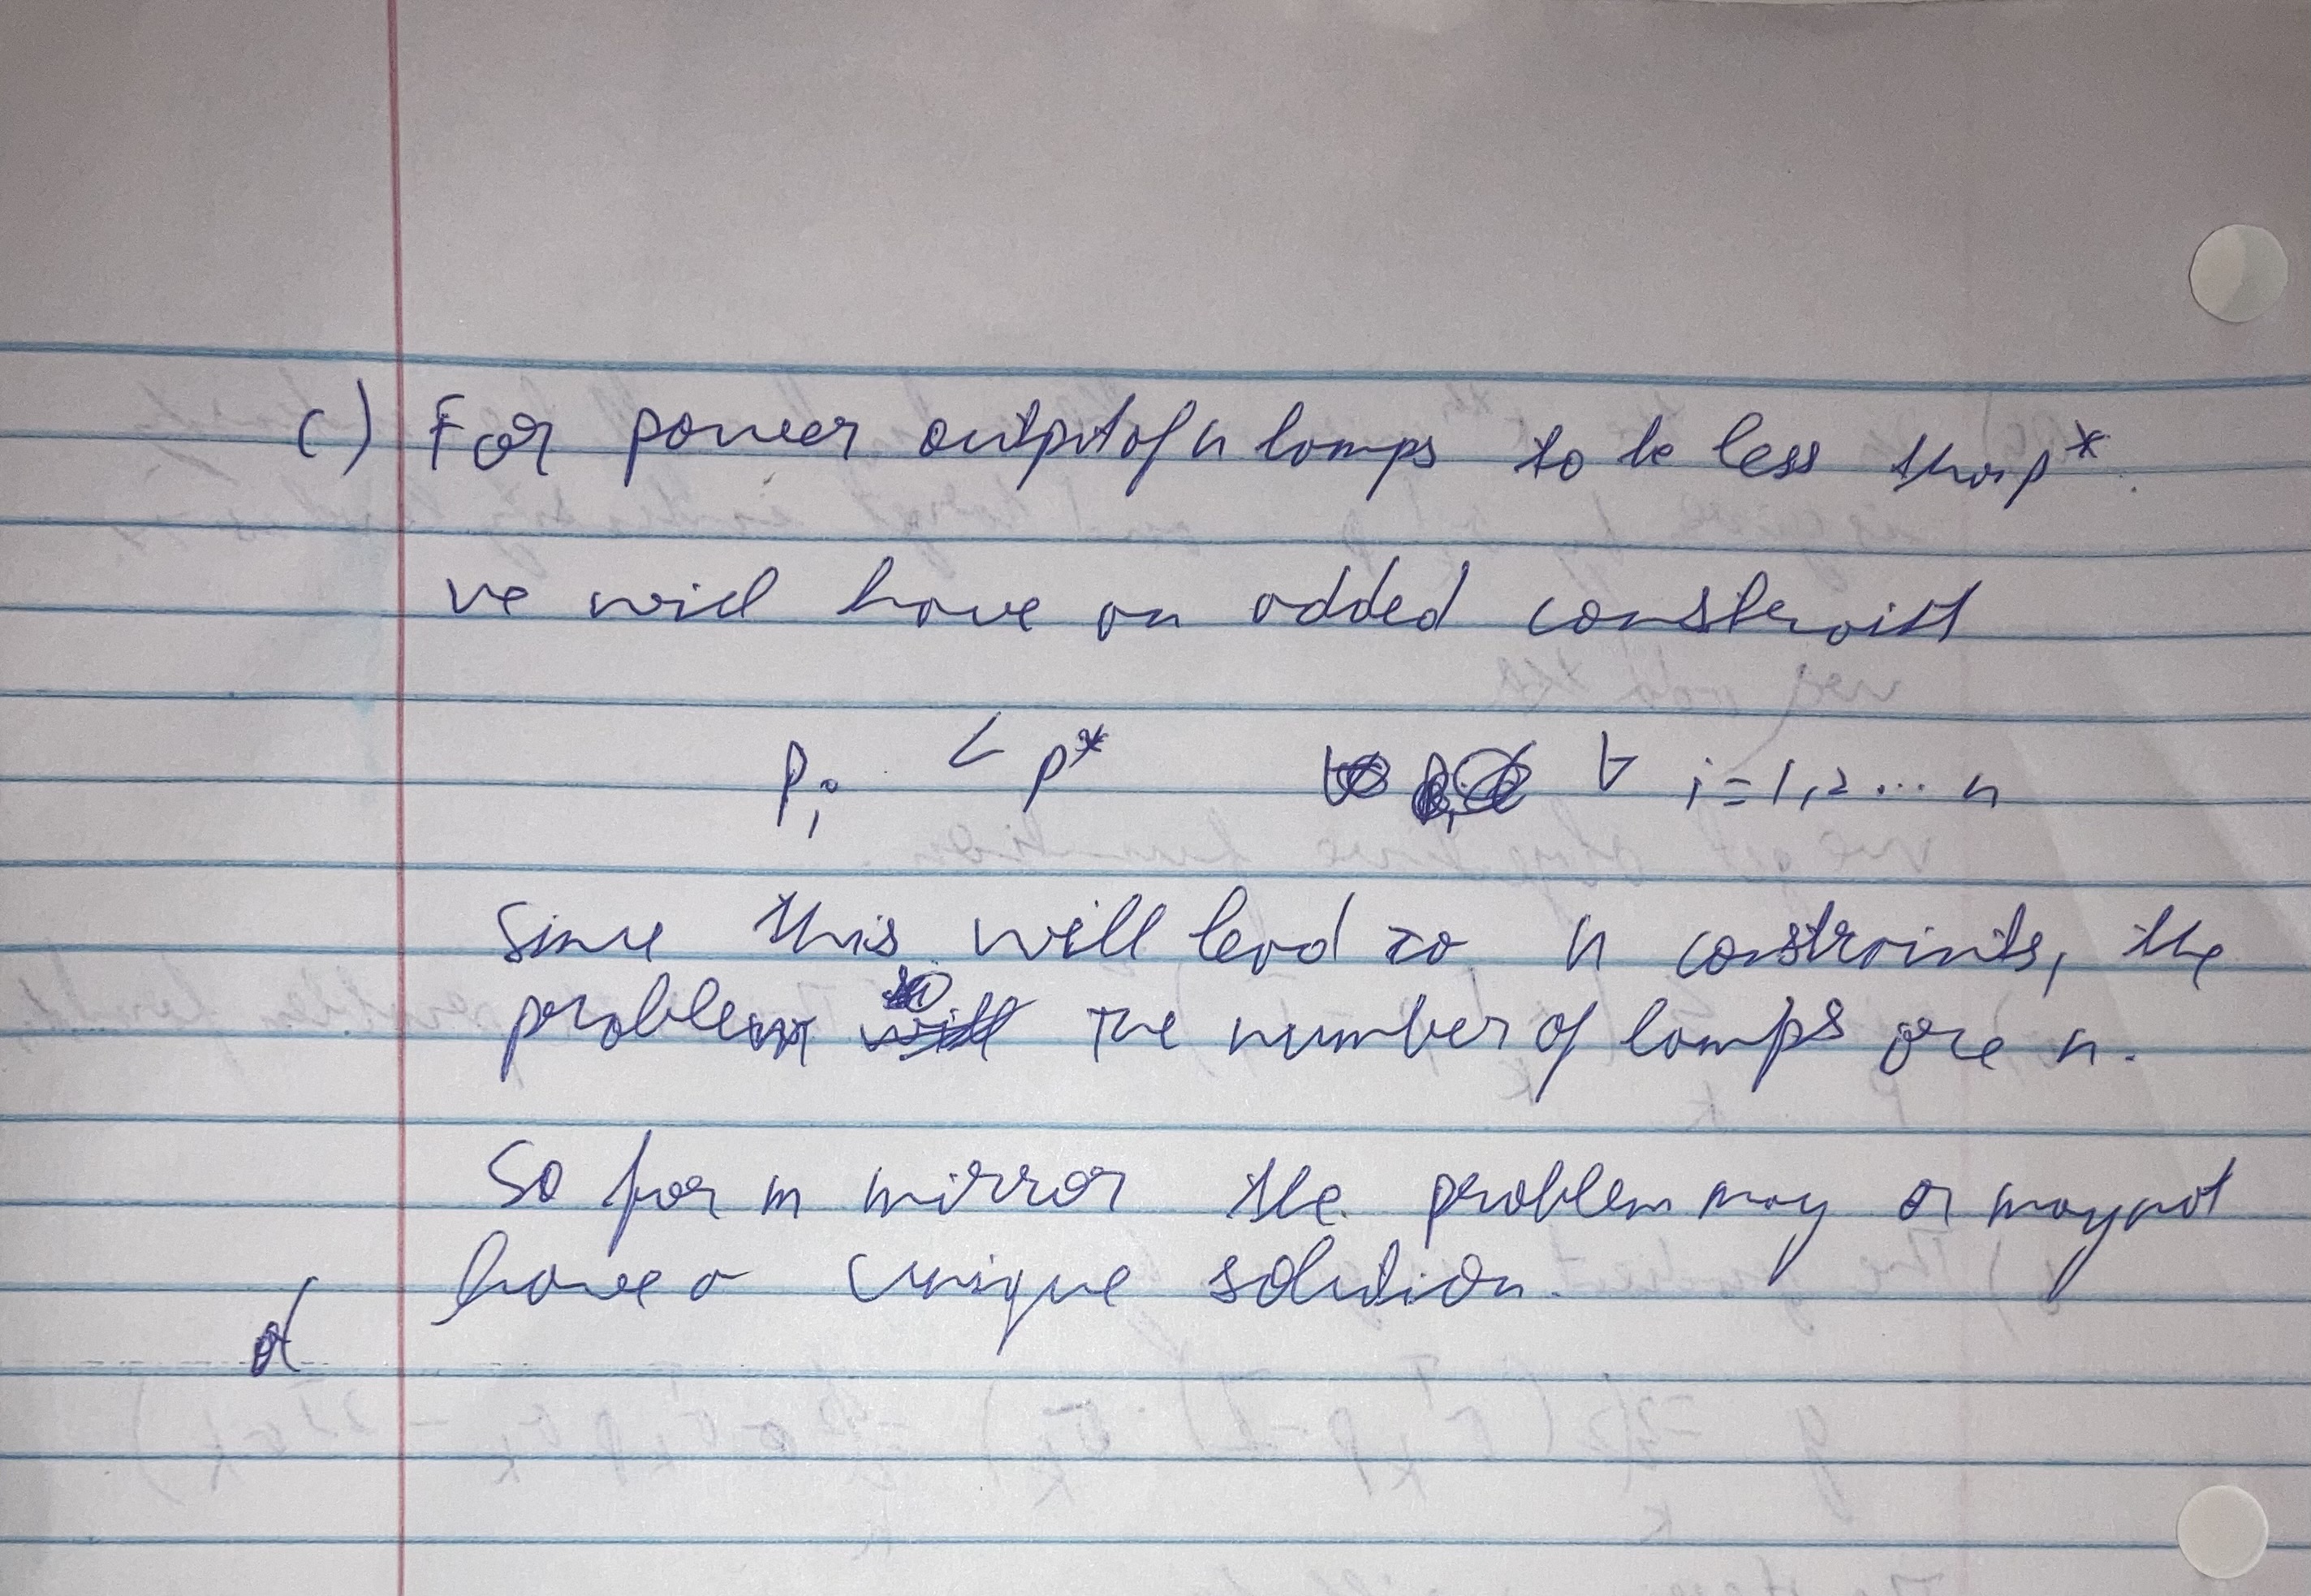 c) For power output of n lamps to be less than p*.
we will have an added constraint
Pi < p* ∀ i = 1,2... n
Since this will lead to n constraints, the
problem The number of lamps are n.
So for m mirror the problem may or may not
have a unique solution.
d